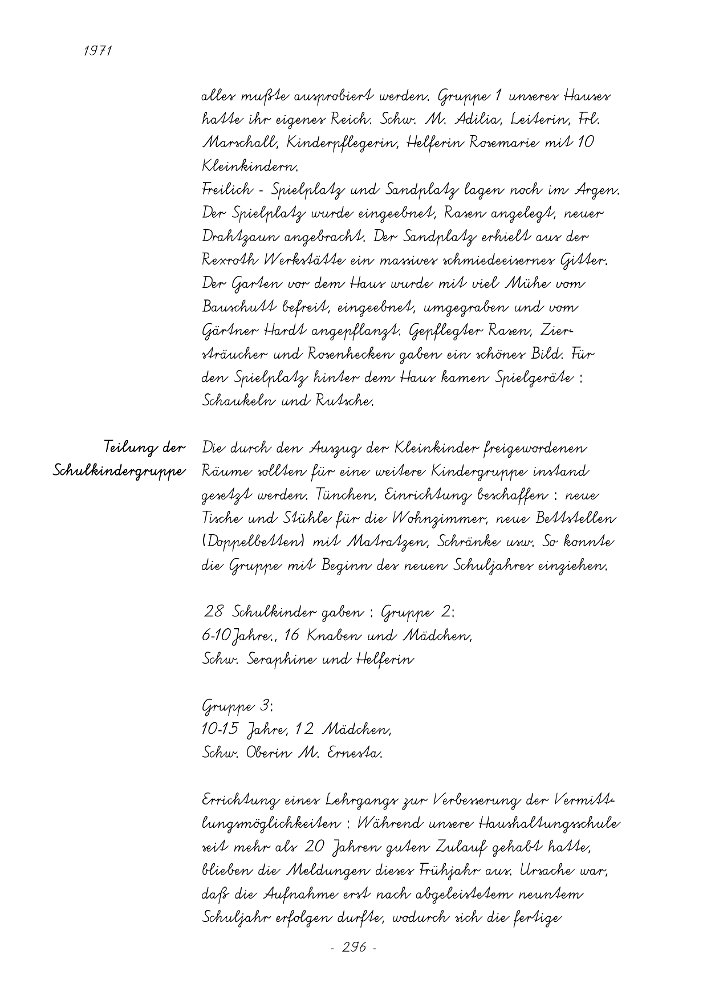 1971
alles mußte ausprobiert werden. Gruppe 1 unseres Hauses
hatte ihr eigenes Reich. Schw. M. Adilia, Leiterin, Frl.
Marschall, Kinderpflegerin, Helferin Rosemarie mit 10
Kleinkindern.
Freilich - Spielplatz und Sandplatz lagen noch im Argen.
Der Spielplatz wurde eingeebnet, Rasen angelegt, neuer
Drahtzaun angebracht. Der Sandplatz erhielt aus der
Rexroth Werkstätte ein massives schmiedeeisernes Gitter.
Der Garten vor dem Haus wurde mit viel Mühe vom
Bauschutt befreit, eingeebnet, umgegraben und vom
Gärtner Hardt angepflanzt. Gepflegter Rasen, Zier-
sträucher und Rosenhecken gaben ein schönes Bild. Für
den Spielplatz hinter dem Haus kamen Spielgeräte :
Schaukeln und Rutsche.
Teilung der
Schulkindergruppe
Die durch den Auszug der Kleinkinder freigewordenen
Räume sollten für eine weitere Kindergruppe instand
gesetzt werden. Tünchen, Einrichtung beschaffen : neue
Tische und Stühle für die Wohnzimmer, neue Bettstellen
(Doppelbetten) mit Matratzen, Schränke usw. So konnte
die Gruppe mit Beginn des neuen Schuljahres einziehen.
28 Schulkinder gaben : Gruppe 2:
6-10 Jahre., 16 Knaben und Mädchen,
Schw. Seraphine und Helferin
Gruppe 3:
10-15 Jahre, 12 Mädchen,
Schw. Oberin M. Ernesta.
Errichtung eines Lehrgangs zur Verbesserung der Vermitt-
lungsmöglichkeiten : Während unsere Haushaltungsschule
seit mehr als 20 Jahren guten Zulauf gehabt hatte,
blieben die Meldungen dieses Frühjahr aus. Ursache war,
daß die Aufnahme erst nach abgeleistetem neuntem
Schuljahr erfolgen durfte, wodurch sich die fertige
- 296 -